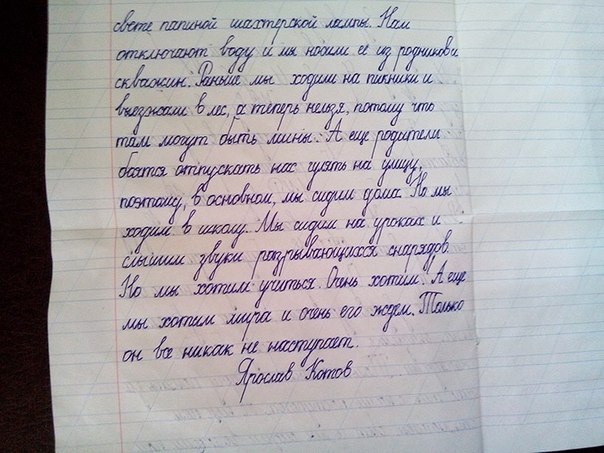 свете папиной шахтерской лампы. Нам
отключают воду и мы носим ее из родников и
скважин. Раньше мы ходили на пикники и
выезжали в лес, а теперь нельзя, потому что
там могут быть мины. А еще родители
боятся отпускать нас гулять на улицу,
поэтому, в основном, мы сидим дома. Но мы
ходим в школу. Мы сидим на уроках и
слышим звуки разрывающихся снарядов.
Но мы хотим учиться. Очень хотим. А еще
мы хотим мира и очень его ждем. Только
он все никак не наступает.
Ярослав Котов